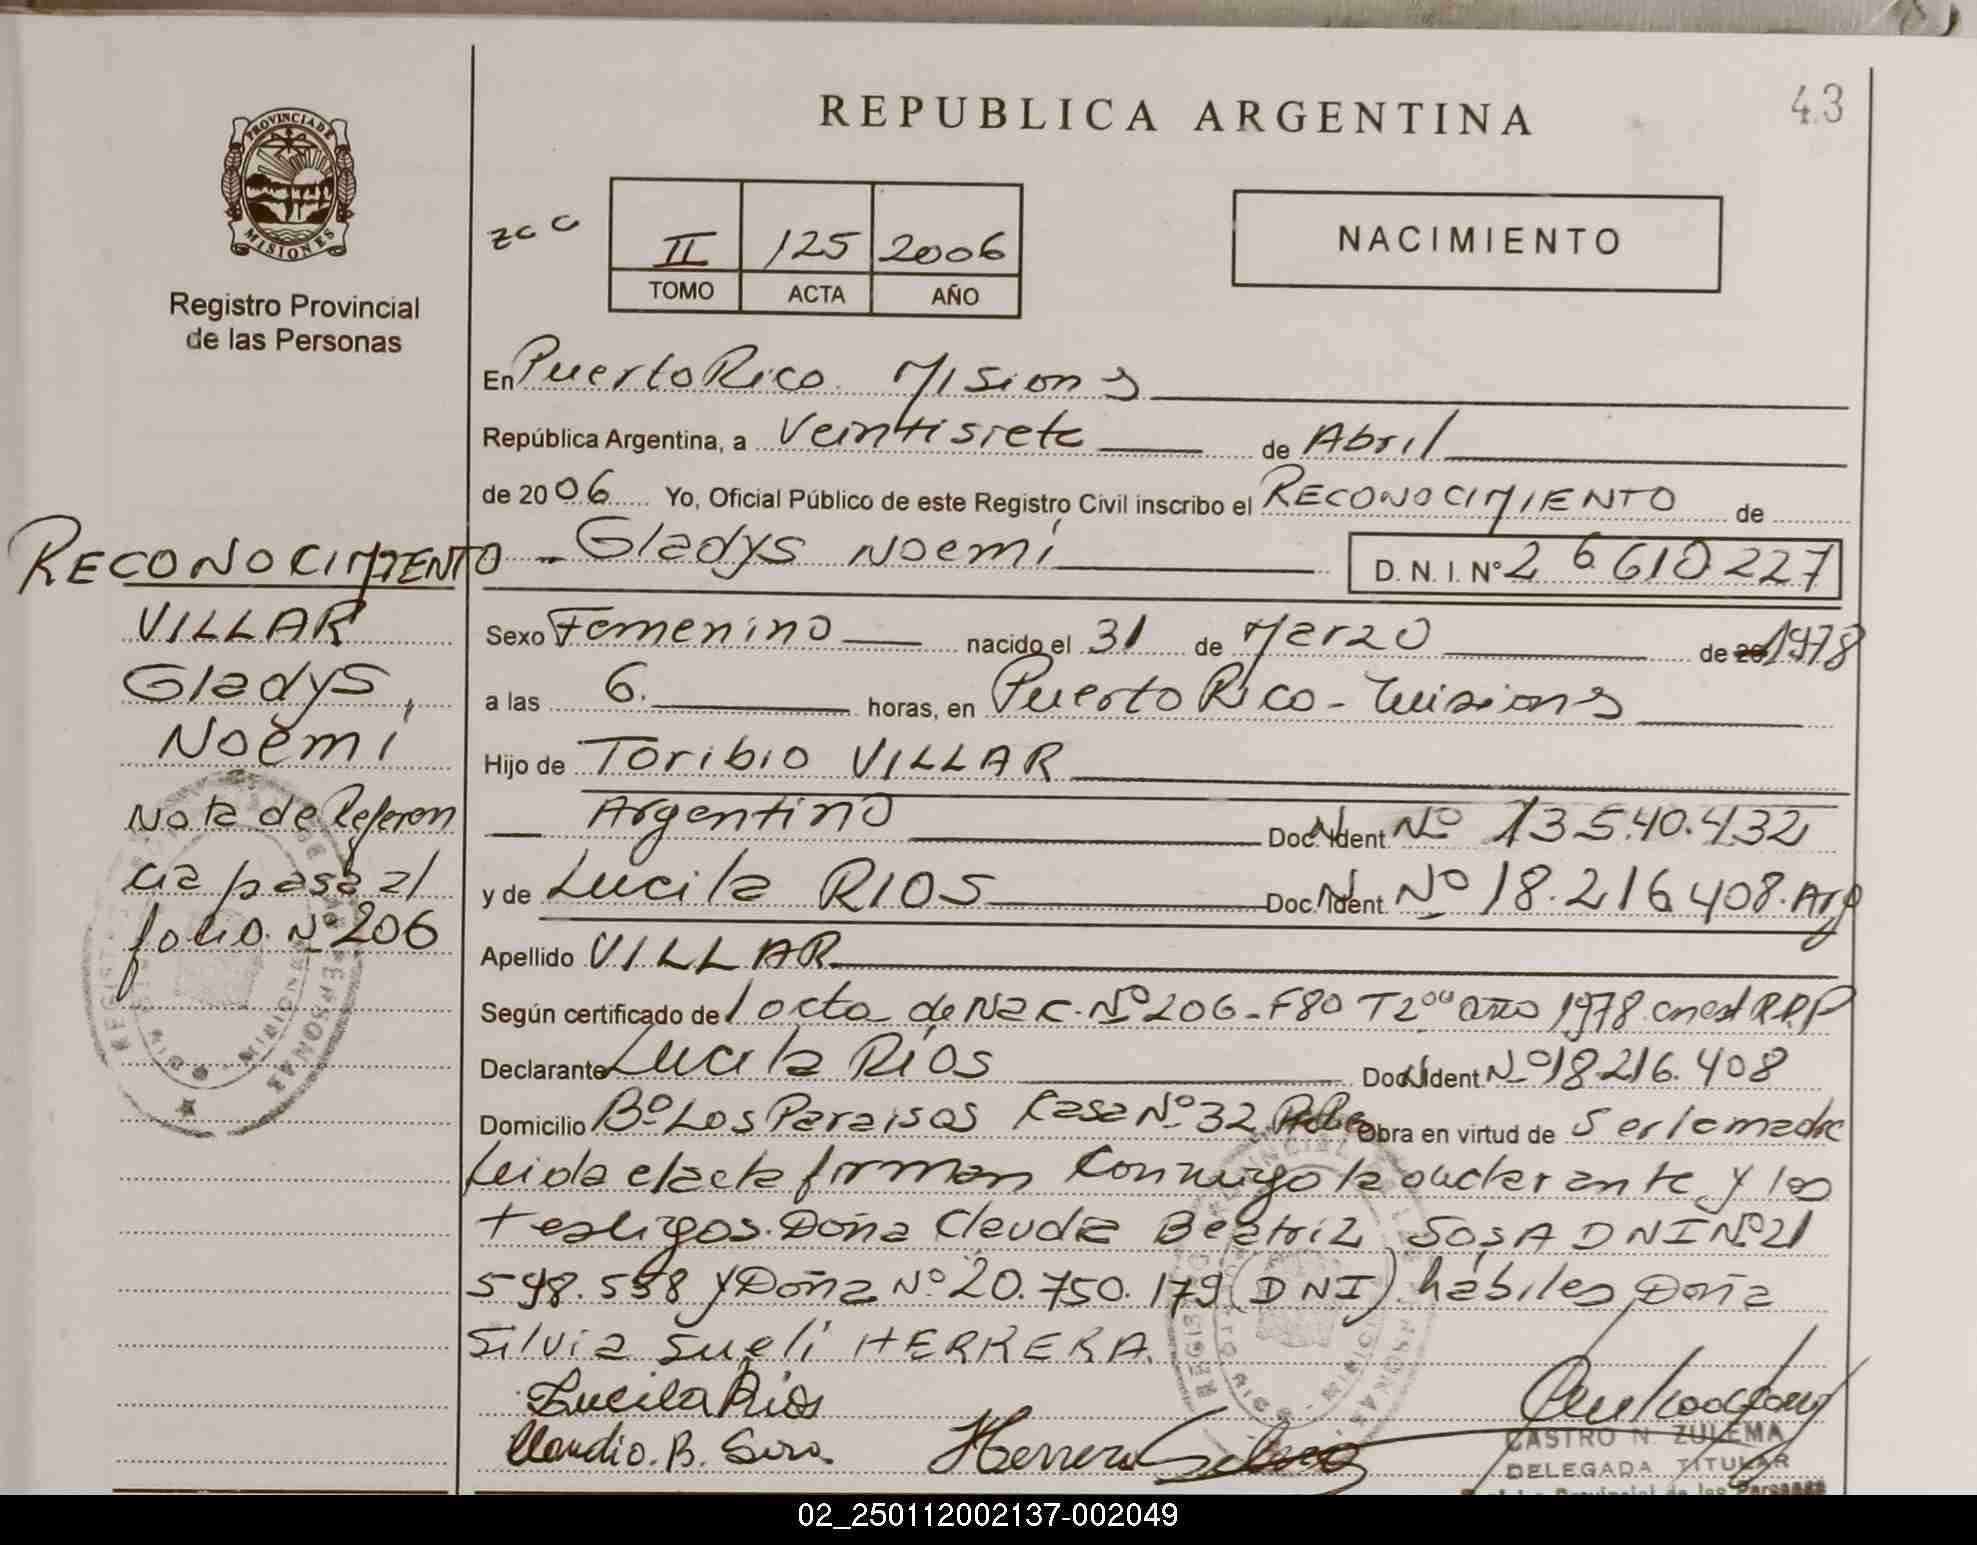 REPUBLICA ARGENTINA
43
PROVINCIA DE
MISIONES
Registro Provincial
de las Personas
II 125 2006
TOMO ACTA AÑO
NACIMIENTO
En Puerto Rico. Misiones
República Argentina, a Veintisiete de Abril
de 2006 Yo, Oficial Público de este Registro Civil inscribo el RECONOCIMIENTO de
Gladys Noemí D.N.I. N° 26610227
Sexo Femenino nacido el 31 de Marzo de 1978
a las 6. horas, en Puerto Rico - Misiones
Hijo de Toribio VILLAR
Argentino Doc. Ident. Nº 13540.432
y de Lucila RIOS Doc. Ident. Nº 18.216408. Arg
Apellido VILLAR
Según certificado del acta de Nac. Nº 206 - F80 T2 año 1978 R.P.P
Declarante Lucila Ríos Doc. Ident Nº 18216.408
Domicilio Bº Los Paraisos Casa Nº 32 Obra en virtud de ser la madre
Leida el acta firman conmigo la declarante y los
testigos Doña Claudia Beatriz SOSA DNI Nº 21
598.558 y Doña Nº 20.750.179 (DNI) hábiles Doña
Silvia Sueli HERRERA.
Lucila Rios
Claudia. B. Sosa.
Herrera Silvia
CASTRO N. ZULEMA
DELEGADA TITULAR
Provincial de las Personas
RECONOCIMIENTO
VILLAR
Gladys,
Noemí
Nota de Referen
cia pasa al
folio Nº 206
02_250112002137-002049